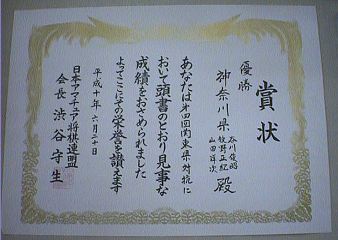 賞状
優勝
神奈川県
谷川俊昭
牧野正紀
山田洋次
殿
あなたは第四回関東県対抗に
おいて頭書のとおり見事な
成績をおさめられました
よってここにその栄誉を讃えます
平成十年六月二十日
日本アマチュア将棋連盟
会長 渋谷守生